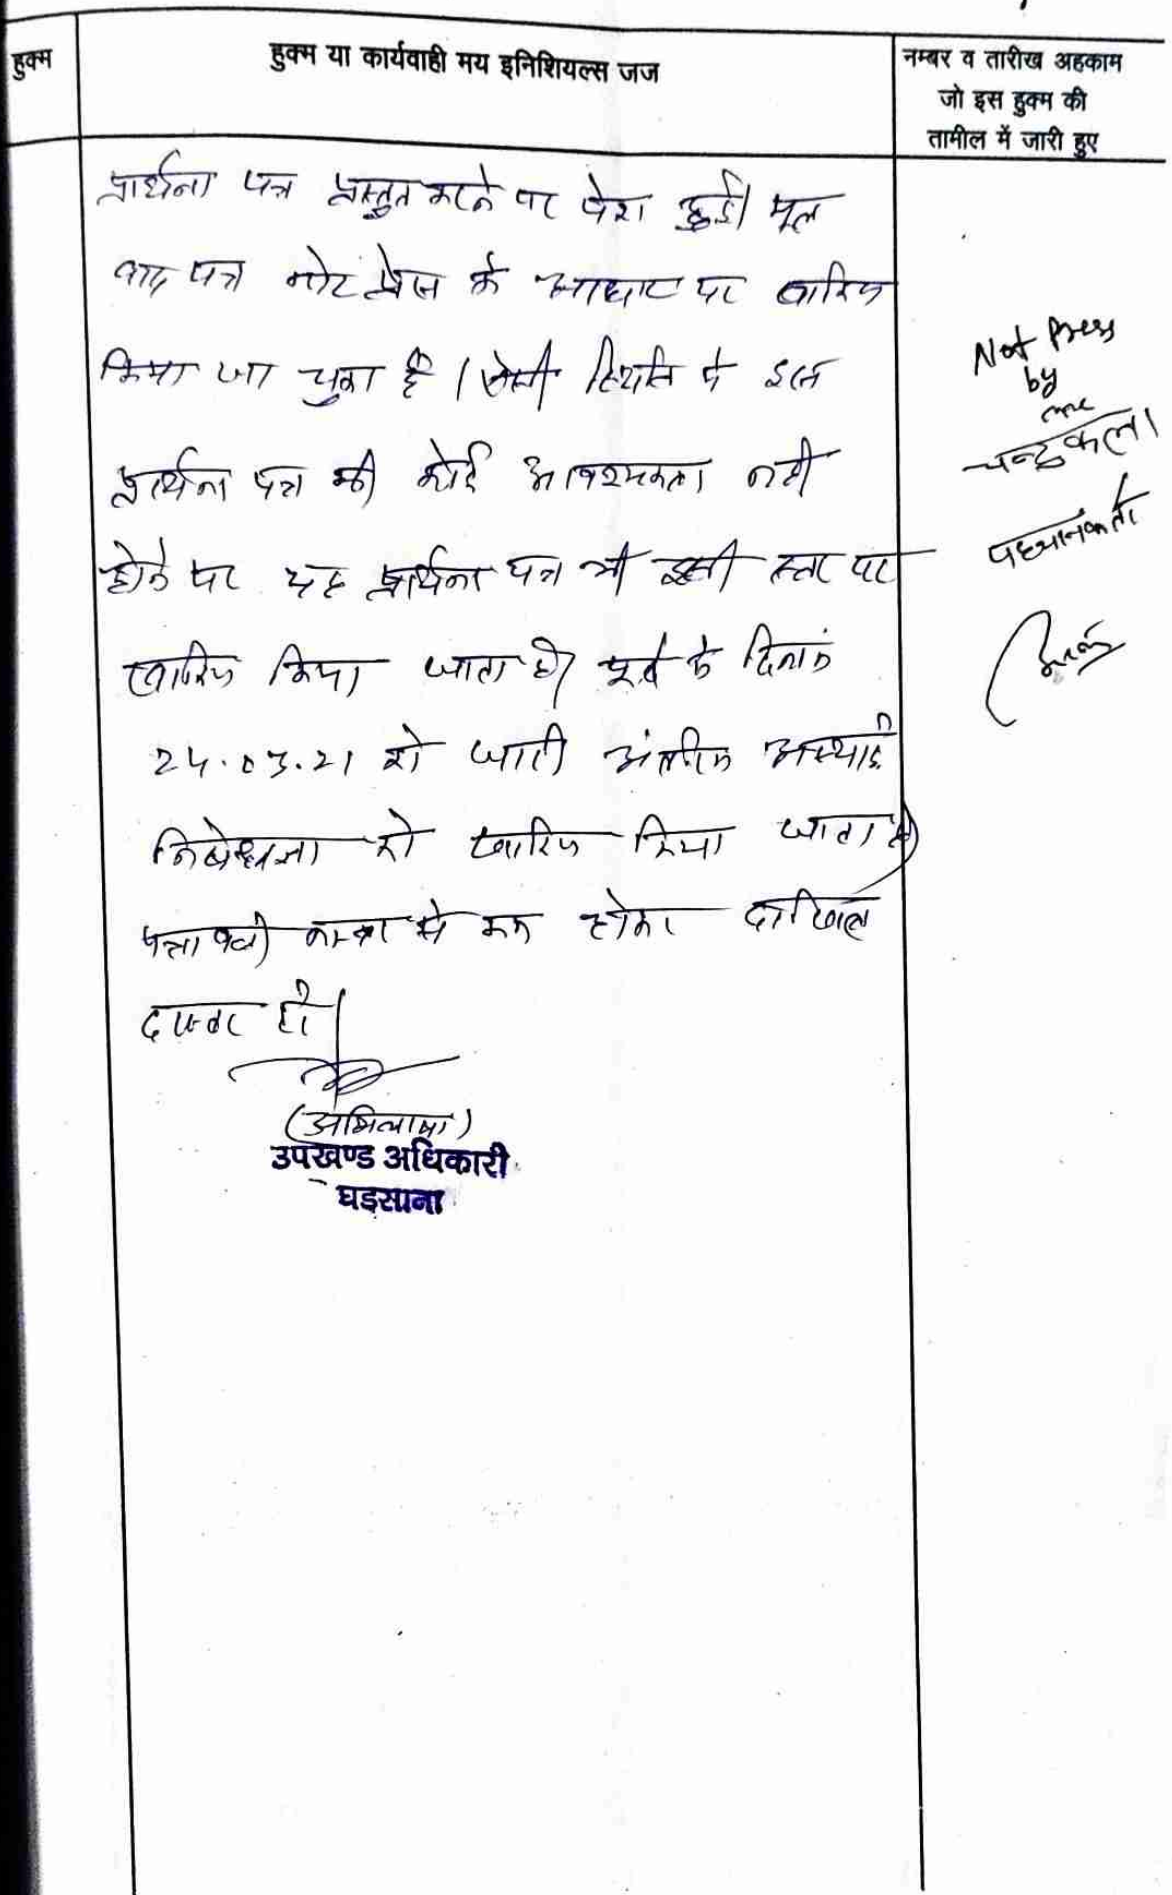 हुक्म
हुक्म या कार्यवाही मय इनिशियल्स जज
नम्बर व तारीख अहकाम
जो इस हुक्म की
तामील में जारी हुए
प्रार्थना पत्र प्रस्तुत करने पर पेश हुई। मूल
वाद पत्र नोट प्रेस के आधार पर खारिज
किया जा चुका है। ऐसी स्थिति में इस
प्रार्थना पत्र की कोई आवश्यकता नहीं
होने पर यह प्रार्थना पत्र भी इसी स्तर पर
खारिज किया जाता है। पूर्व के दिनांक
24.03.21 को जारी अंतरिम अस्थाई
निषेधाज्ञा को खारिज किया जाता है।
पत्रावली नम्बर से कम होकर दाखिल
दफ्तर हो।
(अभिलाषा)
उपखण्ड अधिकारी
घड़साना
Not Press
by
me
चन्द्रकला
पहचानकर्ता